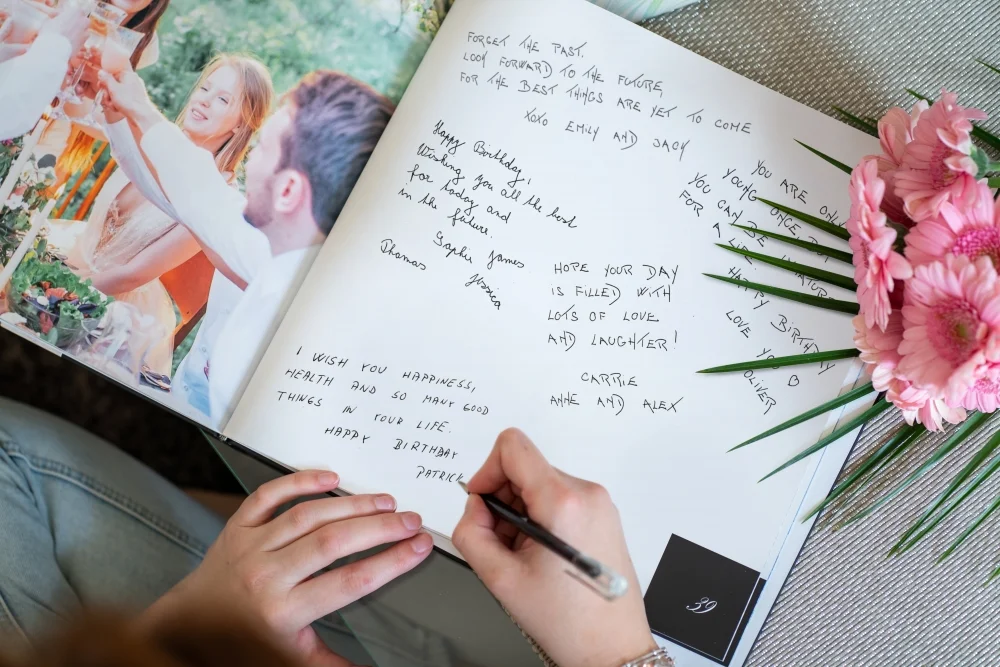 FORGET THE PAST.
LOOK FORWARD TO THE FUTURE,
FOR THE BEST THINGS ARE YET TO COME
XOXO EMILY AND JACK
Happy Birthday,
Wishing you all the best
for today and
in the future.
Sophie James
Thomas
Jessica
YOU ARE ONLY
YOUNG ONCE, BUT
YOU CAN BE
FOR A
HAPPY BIRTHDAY
LOVE YOU
OLIVER
HOPE YOUR DAY
IS FILLED WITH
LOTS OF LOVE
AND LAUGHTER!
CARRIE
ANNE AND ALEX
I WISH YOU HAPPINESS,
HEALTH AND SO MANY GOOD
THINGS IN YOUR LIFE.
HAPPY BIRTHDAY
PATRICK
39